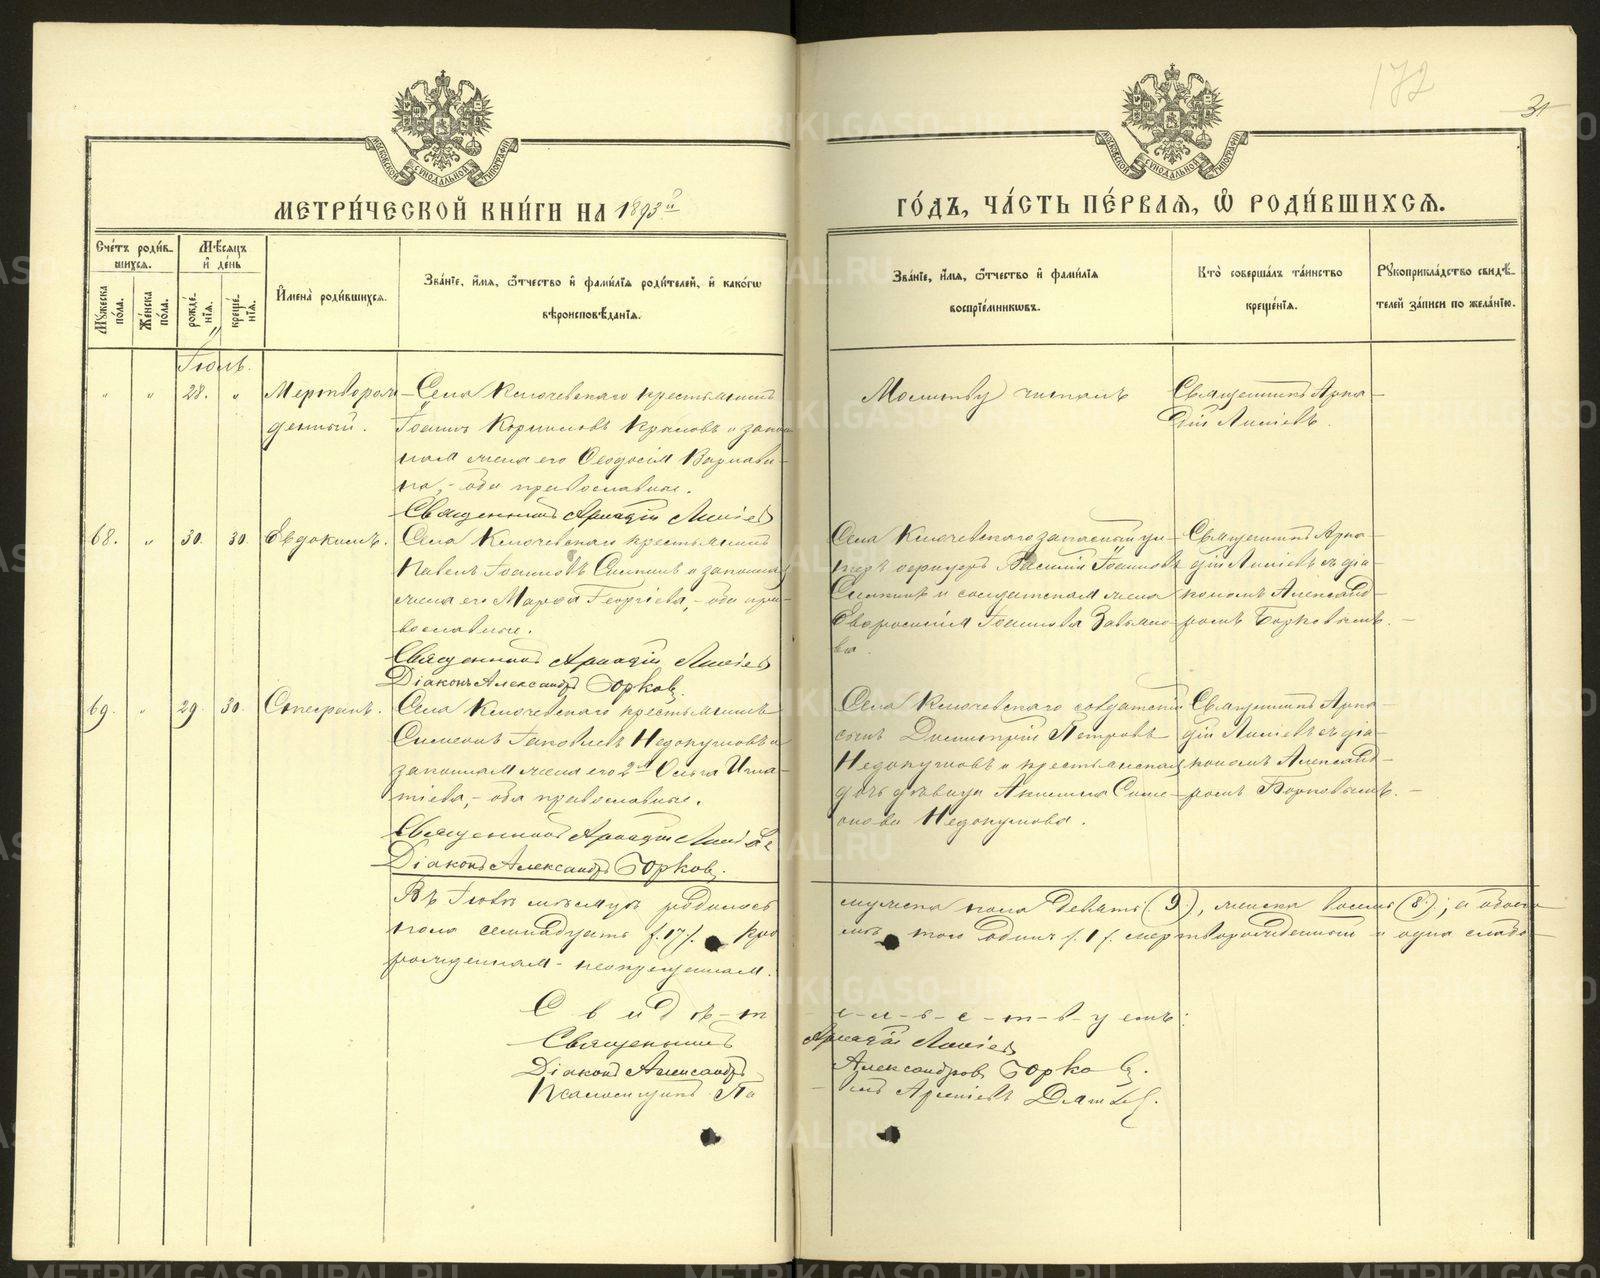 172
31
МОСКОВСКОЙ СУНОДАЛЬНОЙ ТИПОГРАФІИ
МОСКОВСКОЙ СУНОДАЛЬНОЙ ТИПОГРАФІИ
МЕТРИ́ЧЕСКОЙ КНИ́ГИ НА 1893й
ГО́ДЪ, ЧА́СТЬ ПЕ́РВАѦ, Ѡ РОДИ́ВШИХСѦ.
Сче́тъ роди́вшихсѧ.
Мꙋ́жеска по́ла.
Же́нска по́ла.
Мѣ́сѧцъ и́ де́нь
рожде́нїѧ.
креще́нїѧ.
И́мена̀ роди́вшихсѧ.
Зва́нїе, и́мѧ, ѻ́тчество и́ фами́лїѧ роди́телей, и́ како́гѡ вѣроисповѣ́данїѧ.
Зва́нїе, и́мѧ, ѻ́тчество и́ фами́лїѧ воспрїе́мникѡвъ.
Кто̀ соверша́лъ та́инство креще́нїѧ.
Рꙋкоприкла́дство свидѣ́телей за́писи по жела́нїю.
Іюль.
" " 28. " Мертворож-
денный.
Села Ключевскаго крестьянинъ
Іоаннъ Корниловъ Крыловъ и закон-
ная жена его Ѳеодосія Варлави-
на, - оба православные.
Священникъ Аркадій Лисіевъ
Молитву читалъ
Священникъ Арка-
дій Лисіевъ.
68. " 30. 30. Евдокимъ.
Села Ключевскаго крестьянинъ
Павелъ Іоанновъ и законная
жена его Марѳа Георгіева, - оба пра-
вославные.
Священникъ Аркадій Лисіевъ
Діаконъ Александръ Борковъ.
Села Ключевскаго запасный ун-
теръ офицеръ Василій Іоанновъ
и солдатская жена
Евфросинія Іоаннова Завьяло-
ва.
Священникъ Арка-
дій Лисіевъ съ діа-
кономъ Александ-
ромъ Борковымъ. -
69. " 29. 30.
Села Ключевскаго крестьянинъ
Симеонъ Іаковлевъ Недокушовъ и
законная жена его 2я Ольга Игна-
тіева, - оба православные.
Священникъ Аркадій Лисіевъ
Діаконъ Александръ Борковъ.
Села Ключевскаго солдатскій
сынъ Димитрій Петровъ
Недокушовъ и крестьянская
дочь дѣвица Акилина Симе-
онова Недокушова.
Священникъ Арка-
дій Лисіевъ съ діа-
кономъ Александ-
ромъ Борковымъ. -
Въ Іюлѣ мѣсяцѣ родилось
мужска пола девять (9), женска восемь (8), а обоего
пола семнадцать /17/. Кро
мѣ того одинъ /1/ мертворожденный и одна слабо-
рожденная - некрещенная.
С в и д ѣ - т
е - л - ь - с - т - в - у етъ:
Священникъ
Аркадій Лисіевъ
Діаконъ Александръ
Александровъ Борковъ.
Псаломщикъ
METRIKI.GASO-URAL.RU